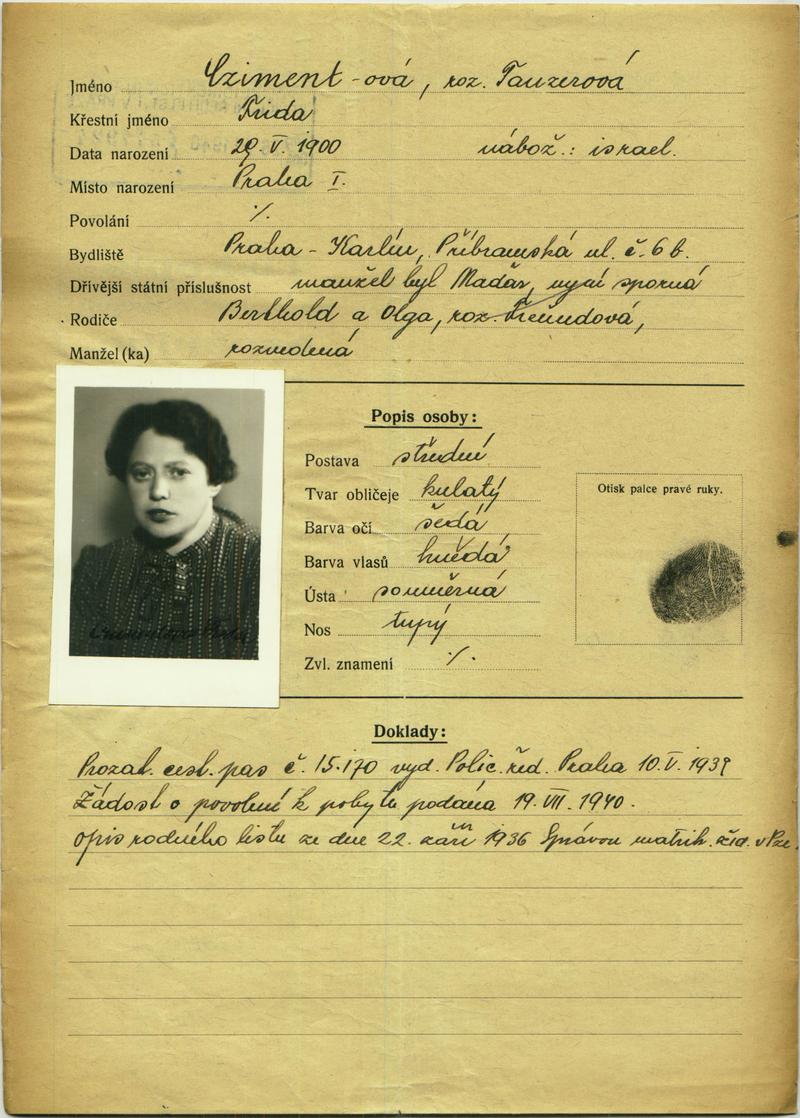 Jméno Cziment-ová, roz. Tauzerová
Křestní jméno Frida
Data narození 29. V. 1900 nábož.: israel.
Místo narození Praha I.
Povolání ⁒
Bydliště Praha - Karlín, Příbramská ul. č. 6 b.
Dřívější státní příslušnost manžel byl Maďar, nyní sporná
Rodiče Berthold a Olga, roz. Freundová,
Manžel(ka) rozvedená
Popis osoby:
Postava střední
Tvar obličeje kulatý
Barva očí šedá
Barva vlasů hnědá
Ústa souměrná
Nos tupý
Zvl. znamení ⁒
Otisk palce pravé ruky.
Doklady:
Prozat. cest. pas č. 15.170 vyd. Polic. řed. Praha 10. V. 1939
Žádost o povolení k pobytu podána 19. VII. 1940.
opis rodného listu ze dne 22. září 1936 Správou matrik. žid. v Pze.